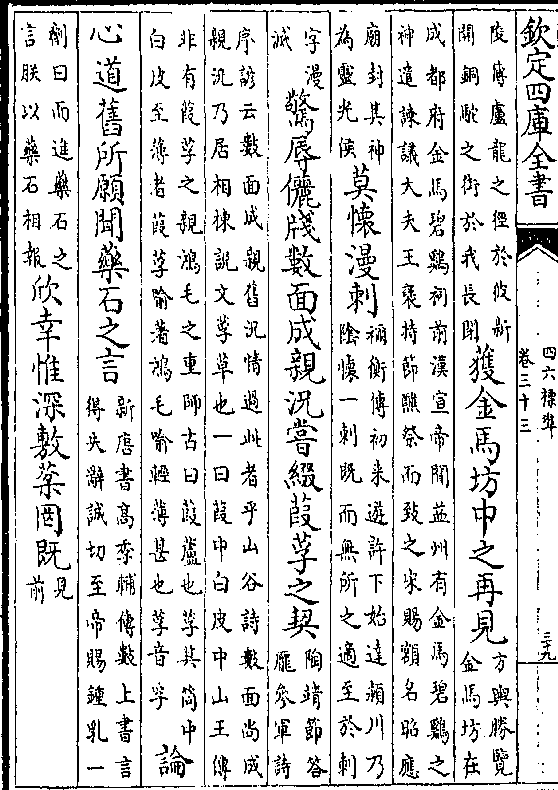 欽定四庫全書
四六標準
卷三十三
三十九
陵薄盧龍之徑於彼新
開銅駝之街於我長閉
獲金馬坊中之再見
方輿勝覽
金馬坊在
成都府金馬碧鷄祠前漢宣帝聞益州有金馬碧鷄之
神遣諫議大夫王襃持節醮祭而致之宋賜額名昭應
廟封其神
為靈光侯
莫懷漫刺
禰衡傳初来遊許下始達潁川乃
陰懷一刺既而無所之適至於刺
字漫
滅
驚辱儷牋數面成親況嘗綴葭莩之契
陶靖節答
龎參軍詩
序諺云數面成親舊況情過此者乎山谷詩數面尚成
親況乃居相棟說文莩草也一曰葭中白皮中山王傳
非有葭莩之親鴻毛之重師古曰葭蘆也莩其筩中
白皮至薄者葭莩喻著鴻毛喻輕薄甚也莩音孚
論
心道舊所願聞藥石之言
新唐書高季輔傳數上書言
得失辭誠切至帝賜鍾乳一
劑曰而進藥石之
言朕以藥石相報
欣幸惟深敷棻罔既
見
前